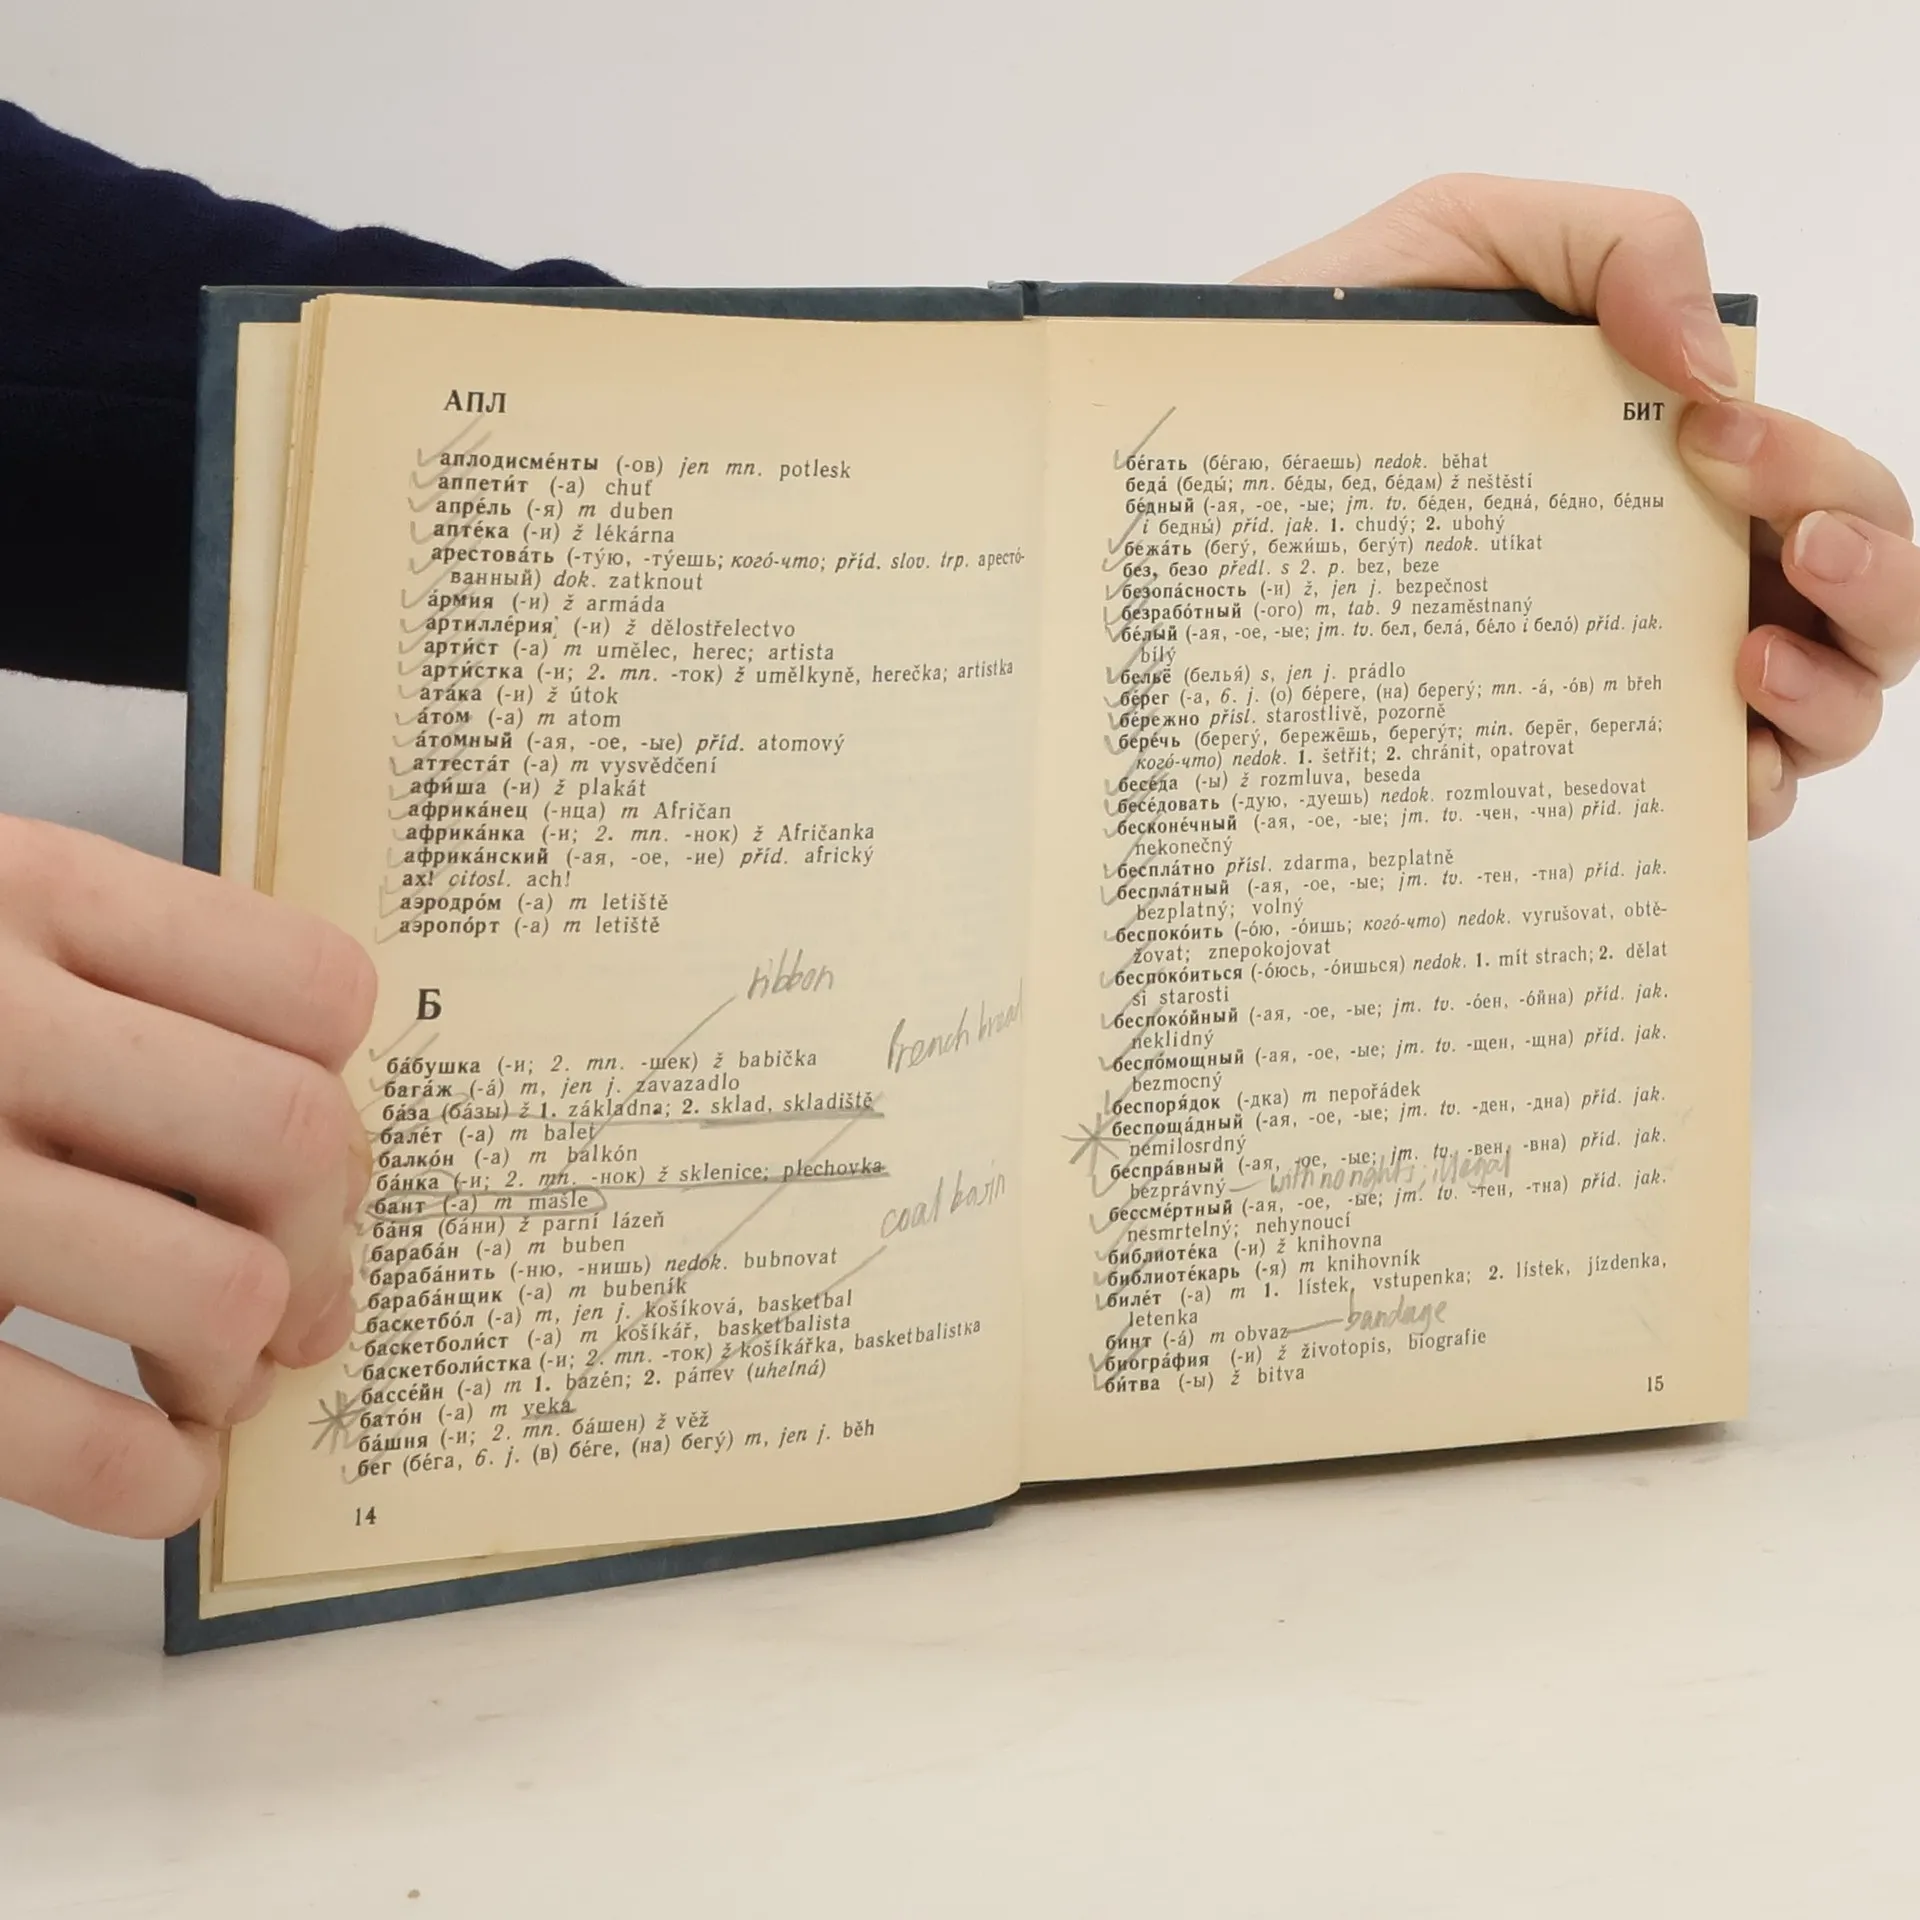 АПЛ
аплодисме́нты (-ов) jen mn. potlesk
аппети́т (-а) chuť
апре́ль (-я) m duben
апте́ка (-и) ž lékárna
арестова́ть (-ту́ю, -ту́ешь; кого́-что; příd. slov. trp. аресто́-
ванный) dok. zatknout
а́рмия (-и) ž armáda
артилле́рия (-и) ž dělostřelectvo
арти́ст (-а) m umělec, herec; artista
арти́стка (-и; 2. mn. -ток) ž umělkyně, herečka; artistka
ата́ка (-и) ž útok
а́том (-а) m atom
а́томный (-ая, -ое, -ые) příd. atomový
аттеста́т (-а) m vysvědčení
афи́ша (-и) ž plakát
африка́нец (-нца) m Afričan
африка́нка (-и; 2. mn. -нок) ž Afričanka
африка́нский (-ая, -ое, -ие) příd. africký
ах! citosl. ach!
аэродро́м (-а) m letiště
аэропо́рт (-а) m letiště
ribbon
Б
French bread
ба́бушка (-и; 2. mn. -шек) ž babička
бага́ж (-а́) m, jen j. zavazadlo
ба́за (ба́зы) ž 1. základna; 2. sklad, skladiště
бале́т (-а) m balet
балко́н (-а) m balkón
ба́нка (-и; 2. mn. -нок) ž sklenice; plechovka
бант (-а) m mašle
coal basin
ба́ня (ба́ни) ž parní lázeň
бараба́н (-а) m buben
бараба́нить (-ню, -нишь) nedok. bubnovat
бараба́нщик (-а) m bubeník
баскетбо́л (-а) m, jen j. košíková, basketbal
баскетболи́ст (-а) m košíkář, basketbalista
баскетболи́стка (-и; 2. mn. -ток) ž košíkářka, basketbalistka
бассе́йн (-а) m 1. bazén; 2. pánev (uhelná)
бато́н (-а) m veka
ба́шня (-и; 2. mn. ба́шен) ž věž
бег (бе́га, 6. j. (в) бе́ге, (на) бегу́) m, jen j. běh
14
БИТ
бе́гать (бе́гаю, бе́гаешь) nedok. běhat
беда́ (беды́; mn. бе́ды, бед, бе́дам) ž neštěstí
бе́дный (-ая, -ое, -ые; jm. tv. бе́ден, бедна́, бе́дно, бе́дны
i бедны́) příd. jak. 1. chudý; 2. ubohý
бежа́ть (бегу́, бежи́шь, бегу́т) nedok. utíkat
без, безо předl. s 2. p. bez, beze
безопа́сность (-и) ž, jen j. bezpečnost
безрабо́тный (-ого) m, tab. 9 nezaměstnaný
бе́лый (-ая, -ое, -ые; jm. tv. бел, бела́, бе́ло i бело́) příd. jak.
bílý
бельё (белья́) s, jen j. prádlo
бе́рег (-а, 6. j. (о) бе́реге, (на) берегу́; mn. -а́, -о́в) m břeh
бе́режно přísl. starostlivě, pozorně
бере́чь (берегу́, бережёшь, берегу́т; min. берёг, берегла́;
кого́-что) nedok. 1. šetřit; 2. chránit, opatrovat
бесе́да (-ы) ž rozmluva, beseda
бесе́довать (-дую, -дуешь) nedok. rozmlouvat, besedovat
бесконе́чный (-ая, -ое, -ые; jm. tv. -чен, -чна) příd. jak.
nekonečný
беспла́тно přísl. zdarma, bezplatně
беспла́тный (-ая, -ое, -ые; jm. tv. -тен, -тна) příd. jak.
bezplatný; volný
беспоко́ить (-о́ю, -о́ишь; кого́-что) nedok. vyrušovat, obtě-
žovat; znepokojovat
беспоко́иться (-о́юсь, -о́ишься) nedok. 1. mít strach; 2. dělat
si starosti
беспоко́йный (-ая, -ое, -ые; jm. tv. -о́ен, -о́йна) příd. jak.
neklidný
беспо́мощный (-ая, -ое, -ые; jm. tv. -щен, -щна) příd. jak.
bezmocný
беспоря́док (-дка) m nepořádek
беспоща́дный (-ая, -ое, -ые; jm. tv. -ден, -дна) příd. jak.
nemilosrdný
беспра́вный (-ая, -ое, -ые; jm. tv. -вен, -вна) příd. jak.
bezprávný with no rights; illegal
бессме́ртный (-ая, -ое, -ые; jm. tv. -тен, -тна) příd. jak.
nesmrtelný; nehynoucí
библиоте́ка (-и) ž knihovna
библиоте́карь (-я) m knihovník
биле́т (-а) m 1. lístek, vstupenka; 2. lístek, jízdenka,
letenka
бинт (-а́) m obvaz bandage
биогра́фия (-и) ž životopis, biografie
би́тва (-ы) ž bitva
15